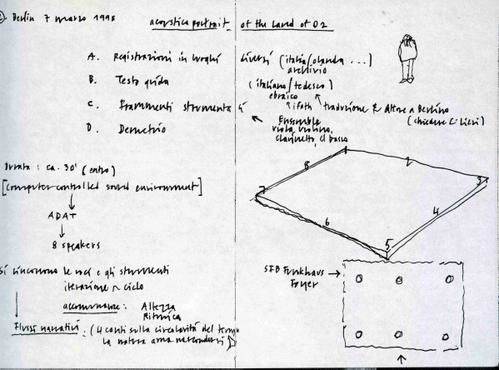 Berlin 7 marzo 1998
acoustica portrait of the Land of Oz
A. Registrazioni in luoghi diversi (italia/olanda ...)
archivio
B. Testo guida (italiano/tedesco)
ebraico
C. Frammenti strumentali
↑ traduzione
Ensemble
viola, violino,
clarinetto,
D. Demetrio
Durata: ca. 30' (entro)
[computer-controlled sound environment]
ADAT
↓
8 speakers
8
3
4
6
5
si sincronno le voci e gli strumenti
iterazione ciclo
accomunare: Altezza
Ritmica
Flussi narrativi: (4 canti sulla circolarità del tempo
la natura ama nascondersi)
SFB Funkhaus →
Foyer